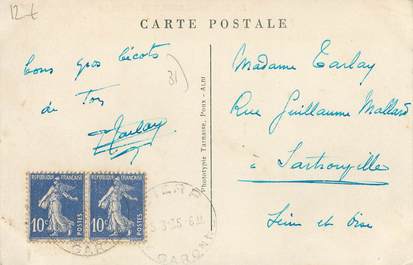 12 €
CARTE POSTALE
Tous gros bécots
de Toy
Tarlay
31
Phototypie Tarnaise, Poux - Albi
Madame Tarlay
Rue Guillaume Mallard
à Sartrouville
Seine et Oise
REPUBLIQUE FRANÇAISE REPUBLIQUE FRANÇAISE
10c POSTES 10c POSTES
GARONNE